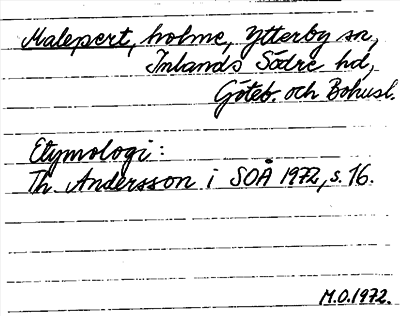 Malepert, holme, Ytterby sn,
Inlands Södre hd,
Göteb. och Bohusl.
Etymologi:
Th. Andersson i SOÅ 1972, s. 16.
M.O.1972.